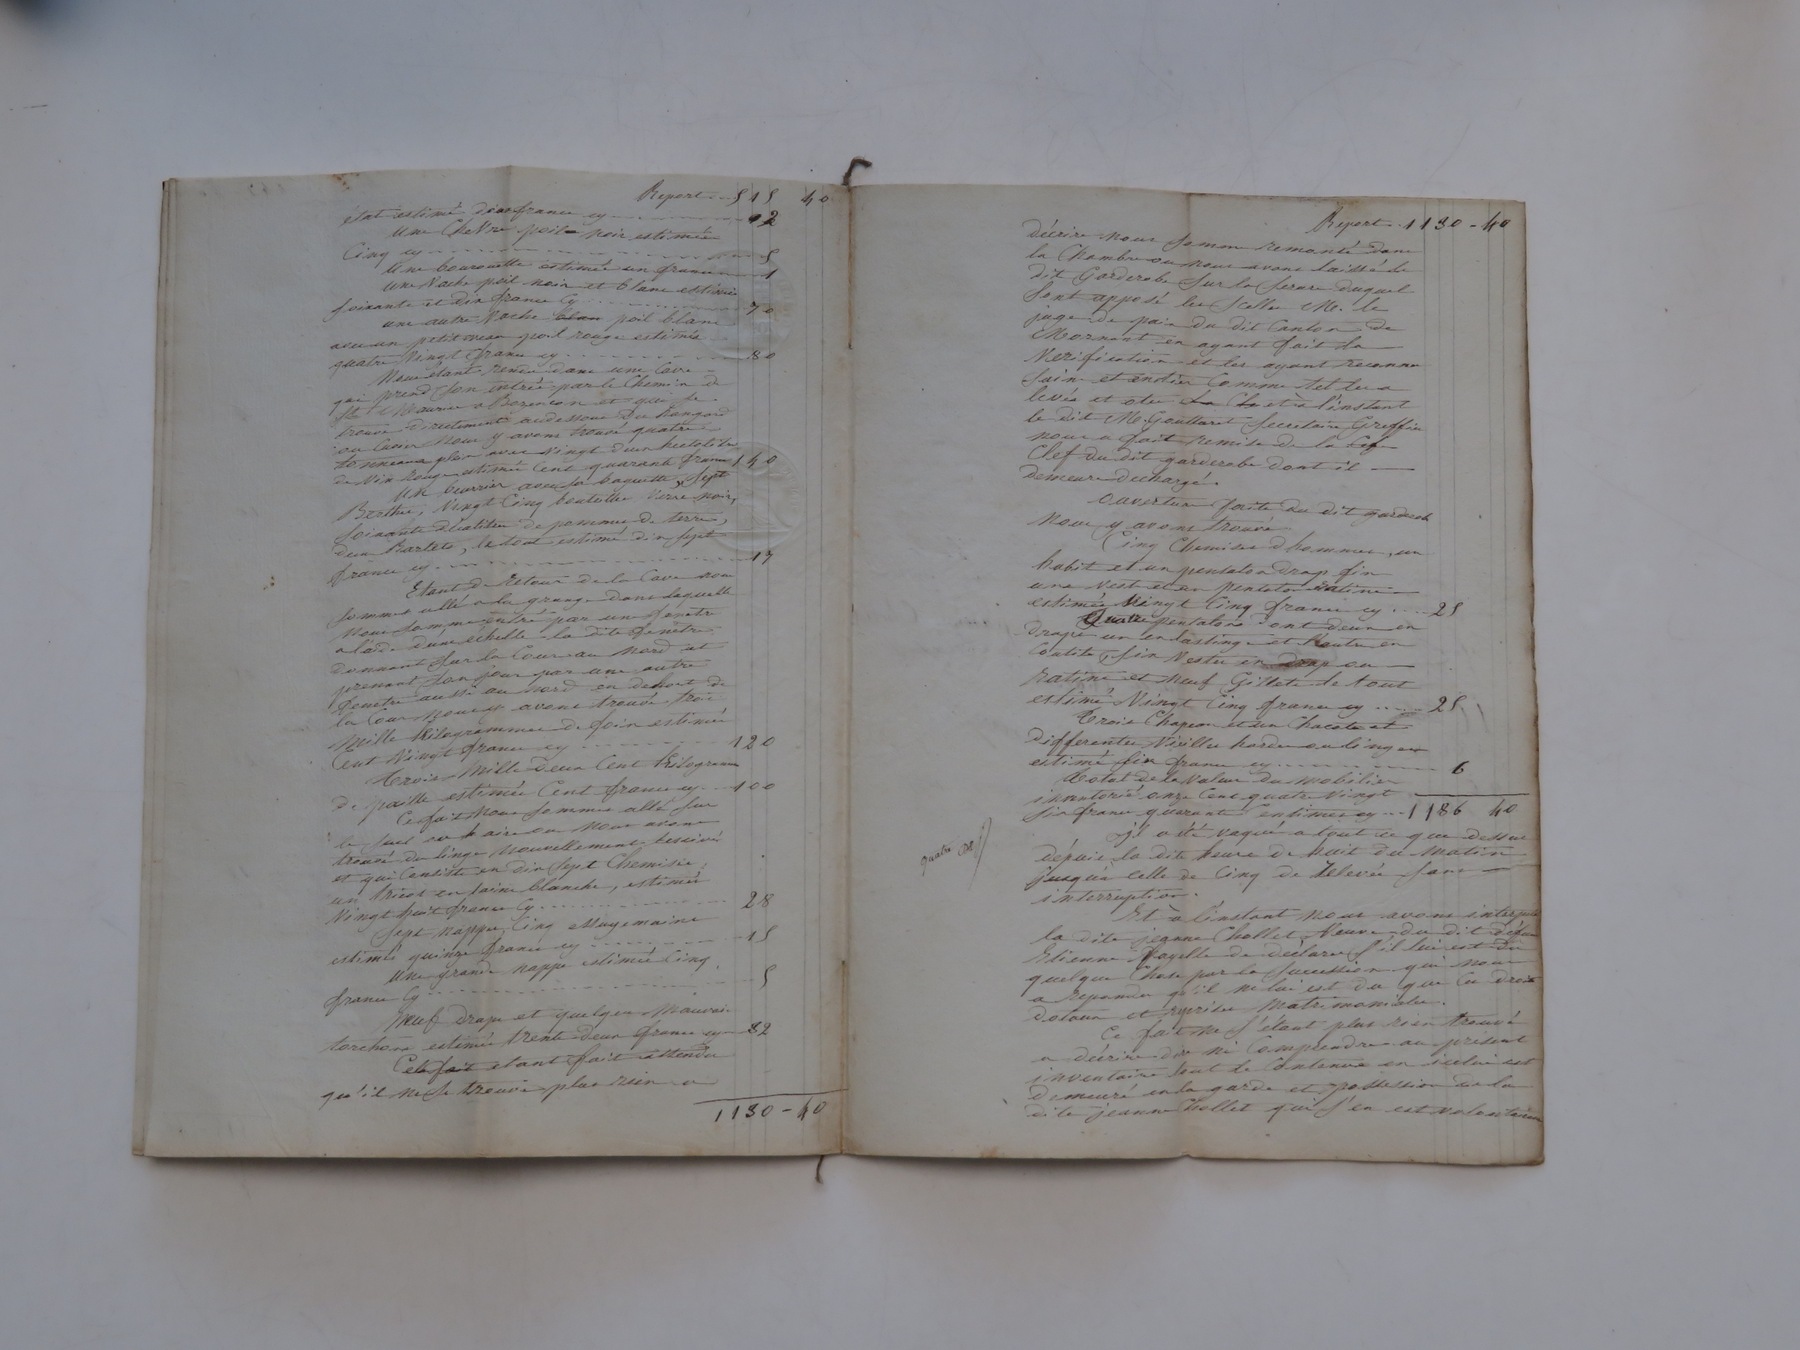 Report . . 515 40
état estimé douze francs cy 12
une chèvre poil noir estimée
cinq cy 5
une bourouette estimée un franc 1
une Vache poil noir et blanc estimée
soixante et dix francs cy 70
une autre Vache blan poil blanc
avec un petit veau poil rouge estimés
quatre vingt francs cy 80
Nous étant rendu dans une Cave
qui prend son entrée par le Chemin de
St Maurice a et qui se
trouve directement audessous du hangard
ou Cuvier nous y avons trouvé quatre
tonneaux plein avec Vingt d'un hectolitre
de Vin Rouge estimé Cent quarante francs 140
Un beurrier avec sa baguette, sept
Berthes, Vingt Cinq bouteilles verre noir,
soixante décalitres de pommes de terre,
deux , le tout estimé dix sept
francs cy 17
Etant de Retour de la Cave nous
sommes allé a la grange dans laquelle
nous sommes entré par une fenêtre
a l'aide d'une échelle la dite fenêtre
donnant sur la Cour au Nord et
prenant son jour par une autre
fenetre aussi au Nord en dehors de
la Cour nous y avons trouvé trois
Mille Kilogrammes de foin estimés
Cent Vingt francs cy 120
Trois Mille deux Cent Kilogrammes
de paille estimés Cent francs cy 100
Ce fait nous sommes allé sur
le suel ou aire ou nous avons
trouvé du linge nouvellement lessivé
et qui consiste en dix sept Chemises,
un tricot en laine blanche, estimés
Vingt huit francs Cy 28
Sept nappes, Cinq essuyemains
estimés quinze francs cy 15
Une grande nappe estimée Cinq
francs Cy 5
Neuf draps et quelques Mauvais
torchons estimés trente deux francs cy 32
Cela fait étant fait attendu
qu'il ne se trouve plus rien a
1130 - 40
Report . . 1130 - 40
décrire nous sommes remonté dans
la Chambre ou nous avons laissé le
dit Garderobe sur la serrure duquel
sont apposé les scellés M. le
juge de paix du dit Canton de
Mornant en ayant fait la
Verification et les ayant reconnu
sains et entiers Comme tel les a
levés et otés et a l'instant
le dit M. Gouttaret secretaire Greffier
nous a fait remise de la
Clef du dit garderobe dont il
demeure dechargé.
Ouverture faite du dit garderobe
nous y avons trouvé
Cinq Chemises d'hommes, un
habit et un pentalon drap fin
une Veste et un pentalon ratine
estimés Vingt Cinq francs cy 25
Quatre pentalons dont deux en
drap un en lastinge et l'autre en
Coutile, six Vestes en drap ou
ratine et neuf Gillets le tout
estimé Vingt Cinq francs cy 25
Trois Chapeau et un Chacota et
differentes Vieilles hardes ou linges
estimé six francs cy 6
Total de la Valeur du mobilier
inventorié onze Cent quatre Vingt
six francs quarante Centimes cy 1186 40
Il a été vaqué a tout ce que dessus
depuis la dite heure de huit du Matin
jusqua celle de Cinq de Relevée sans
interruption.
Et à l'instant nous avons interpelé
la dite jeanne Chollet, Veuve du dit défunt
Etienne de déclarer s'il lui est du
quelque Chose par la succession qui nous
a repondu qu'il ne lui est du que ses droits
dotaux et reprises Matrimoniales.
Ce fait ne s'étant plus rien trouvé
a décrire dire ni Comprendre au présent
inventaire tout le Contenu en icelui est
demeuré en la garde et possession de la
dite jeanne Chollet qui s'en est volontairem